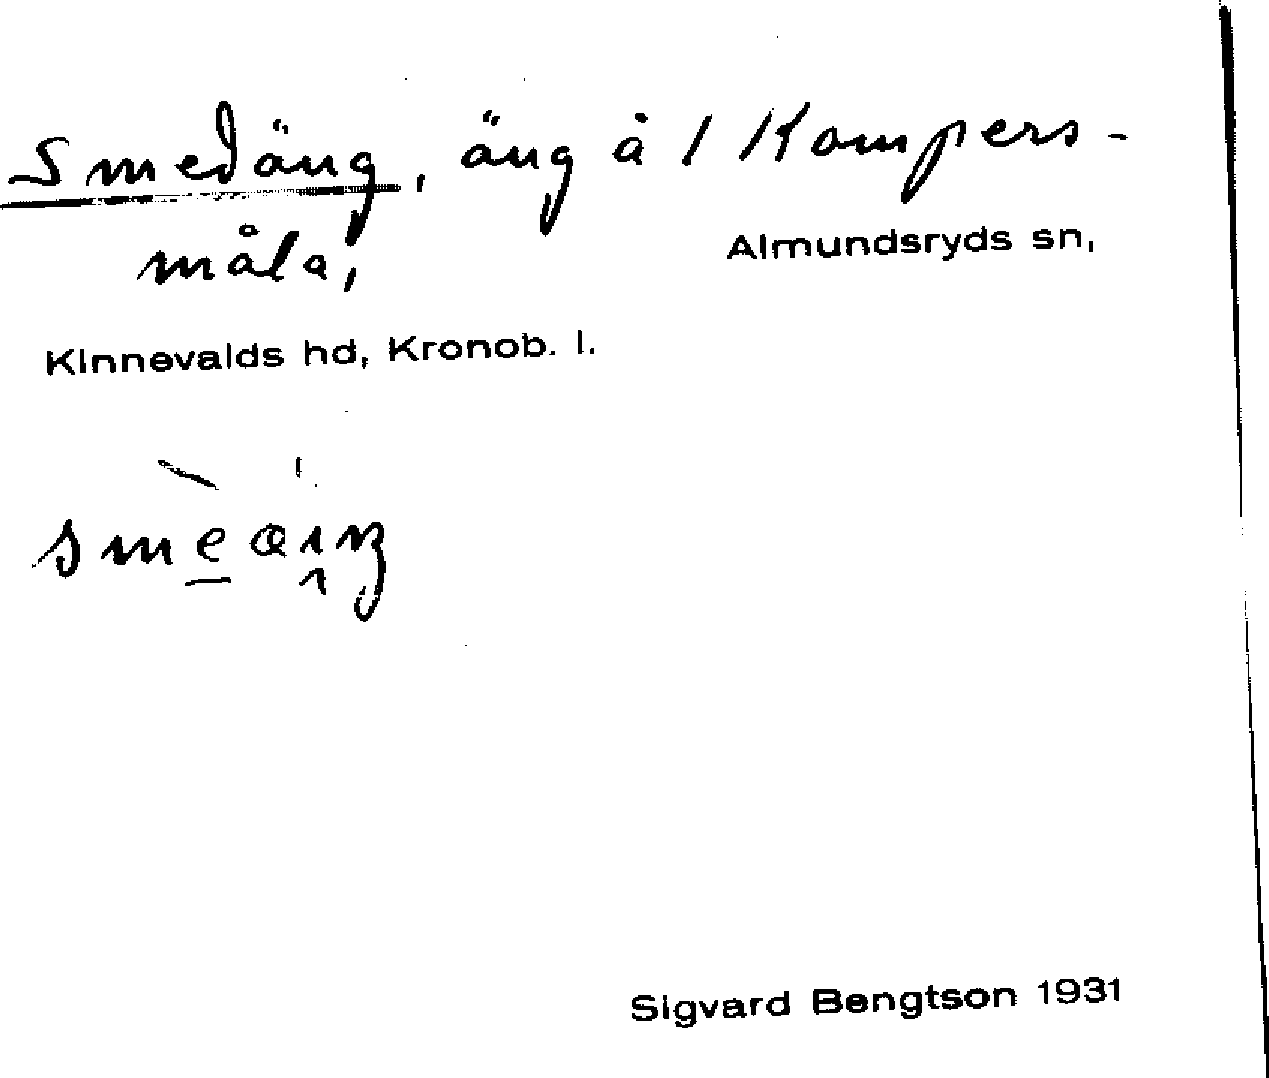 Smedäng, äng å 1 Kampers-
måla,
Almundsryds sn,
Kinnevalds hd, Kronob. l.
Sigvard Bengtson 1931